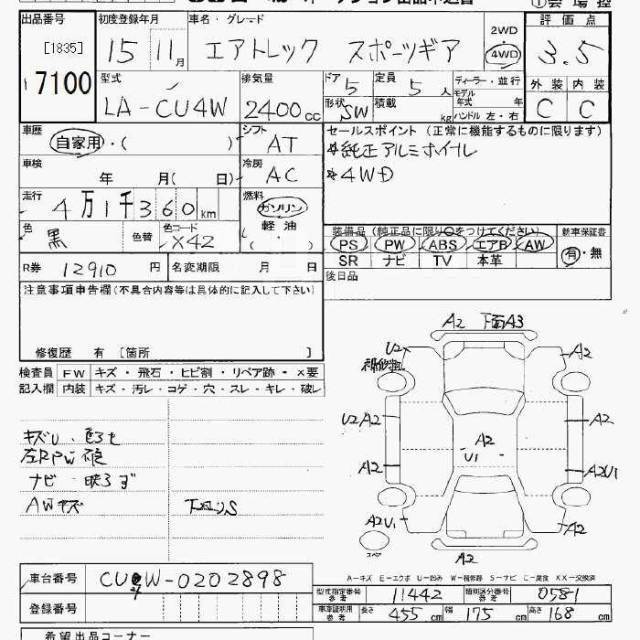 出品番号 初度登録年月 車名・グレード 2WD 評価点
[1835] 15年 11月 エアトレック スポーツギア 4WD 3.5
17100
型式 排気量 ドア 5 定員 5人 ディーラー・並行 外装 内装
LA-CU4W 2400cc 形状 SW 積載 kg モデル年式 年 ハンドル 左・右 C C
車歴 自家用・( ) シフト AT セールスポイント(正常に機能するものに限ります)
*純正アルミホイール
車検 年 月( 日) 冷房 AC *4WD
走行 4万1千360km 燃料 ガソリン 軽油 ( )
色 黒 色替 色コード X42 装備品(純正品に限り○をつけてください) 新車保証書
PS PW ABS エアB AW 有・無
R券 12910円 名変期限 月 日 SR ナビ TV 本革
後日品
注意事項申告欄(不具合内容等は具体的に記入して下さい)
修復歴 有 [箇所
検査員 FW キズ・飛石・ヒビ割・リペア跡・×要
記入欄 内装 キズ・汚レ・コゲ・穴・スレ・キレ・破レ
A2 下面A3
U2 A2
U2/A2 A2
A2 A2 A2U1
U1
A2U1 A2
A2
キズU
左RPW
ナビ 映らず
AWキズ
A-キズ E-エクボ U-凹み W-補修跡 S-サビ C-腐食 XX-交換済
車台番号 CU4W-0202898
型式指定番号 参考 11442 類別区分番号 参考 0581
登録番号
車車証参考 長さ 455cm 幅 175cm 高さ 168cm
希望出品コーナー